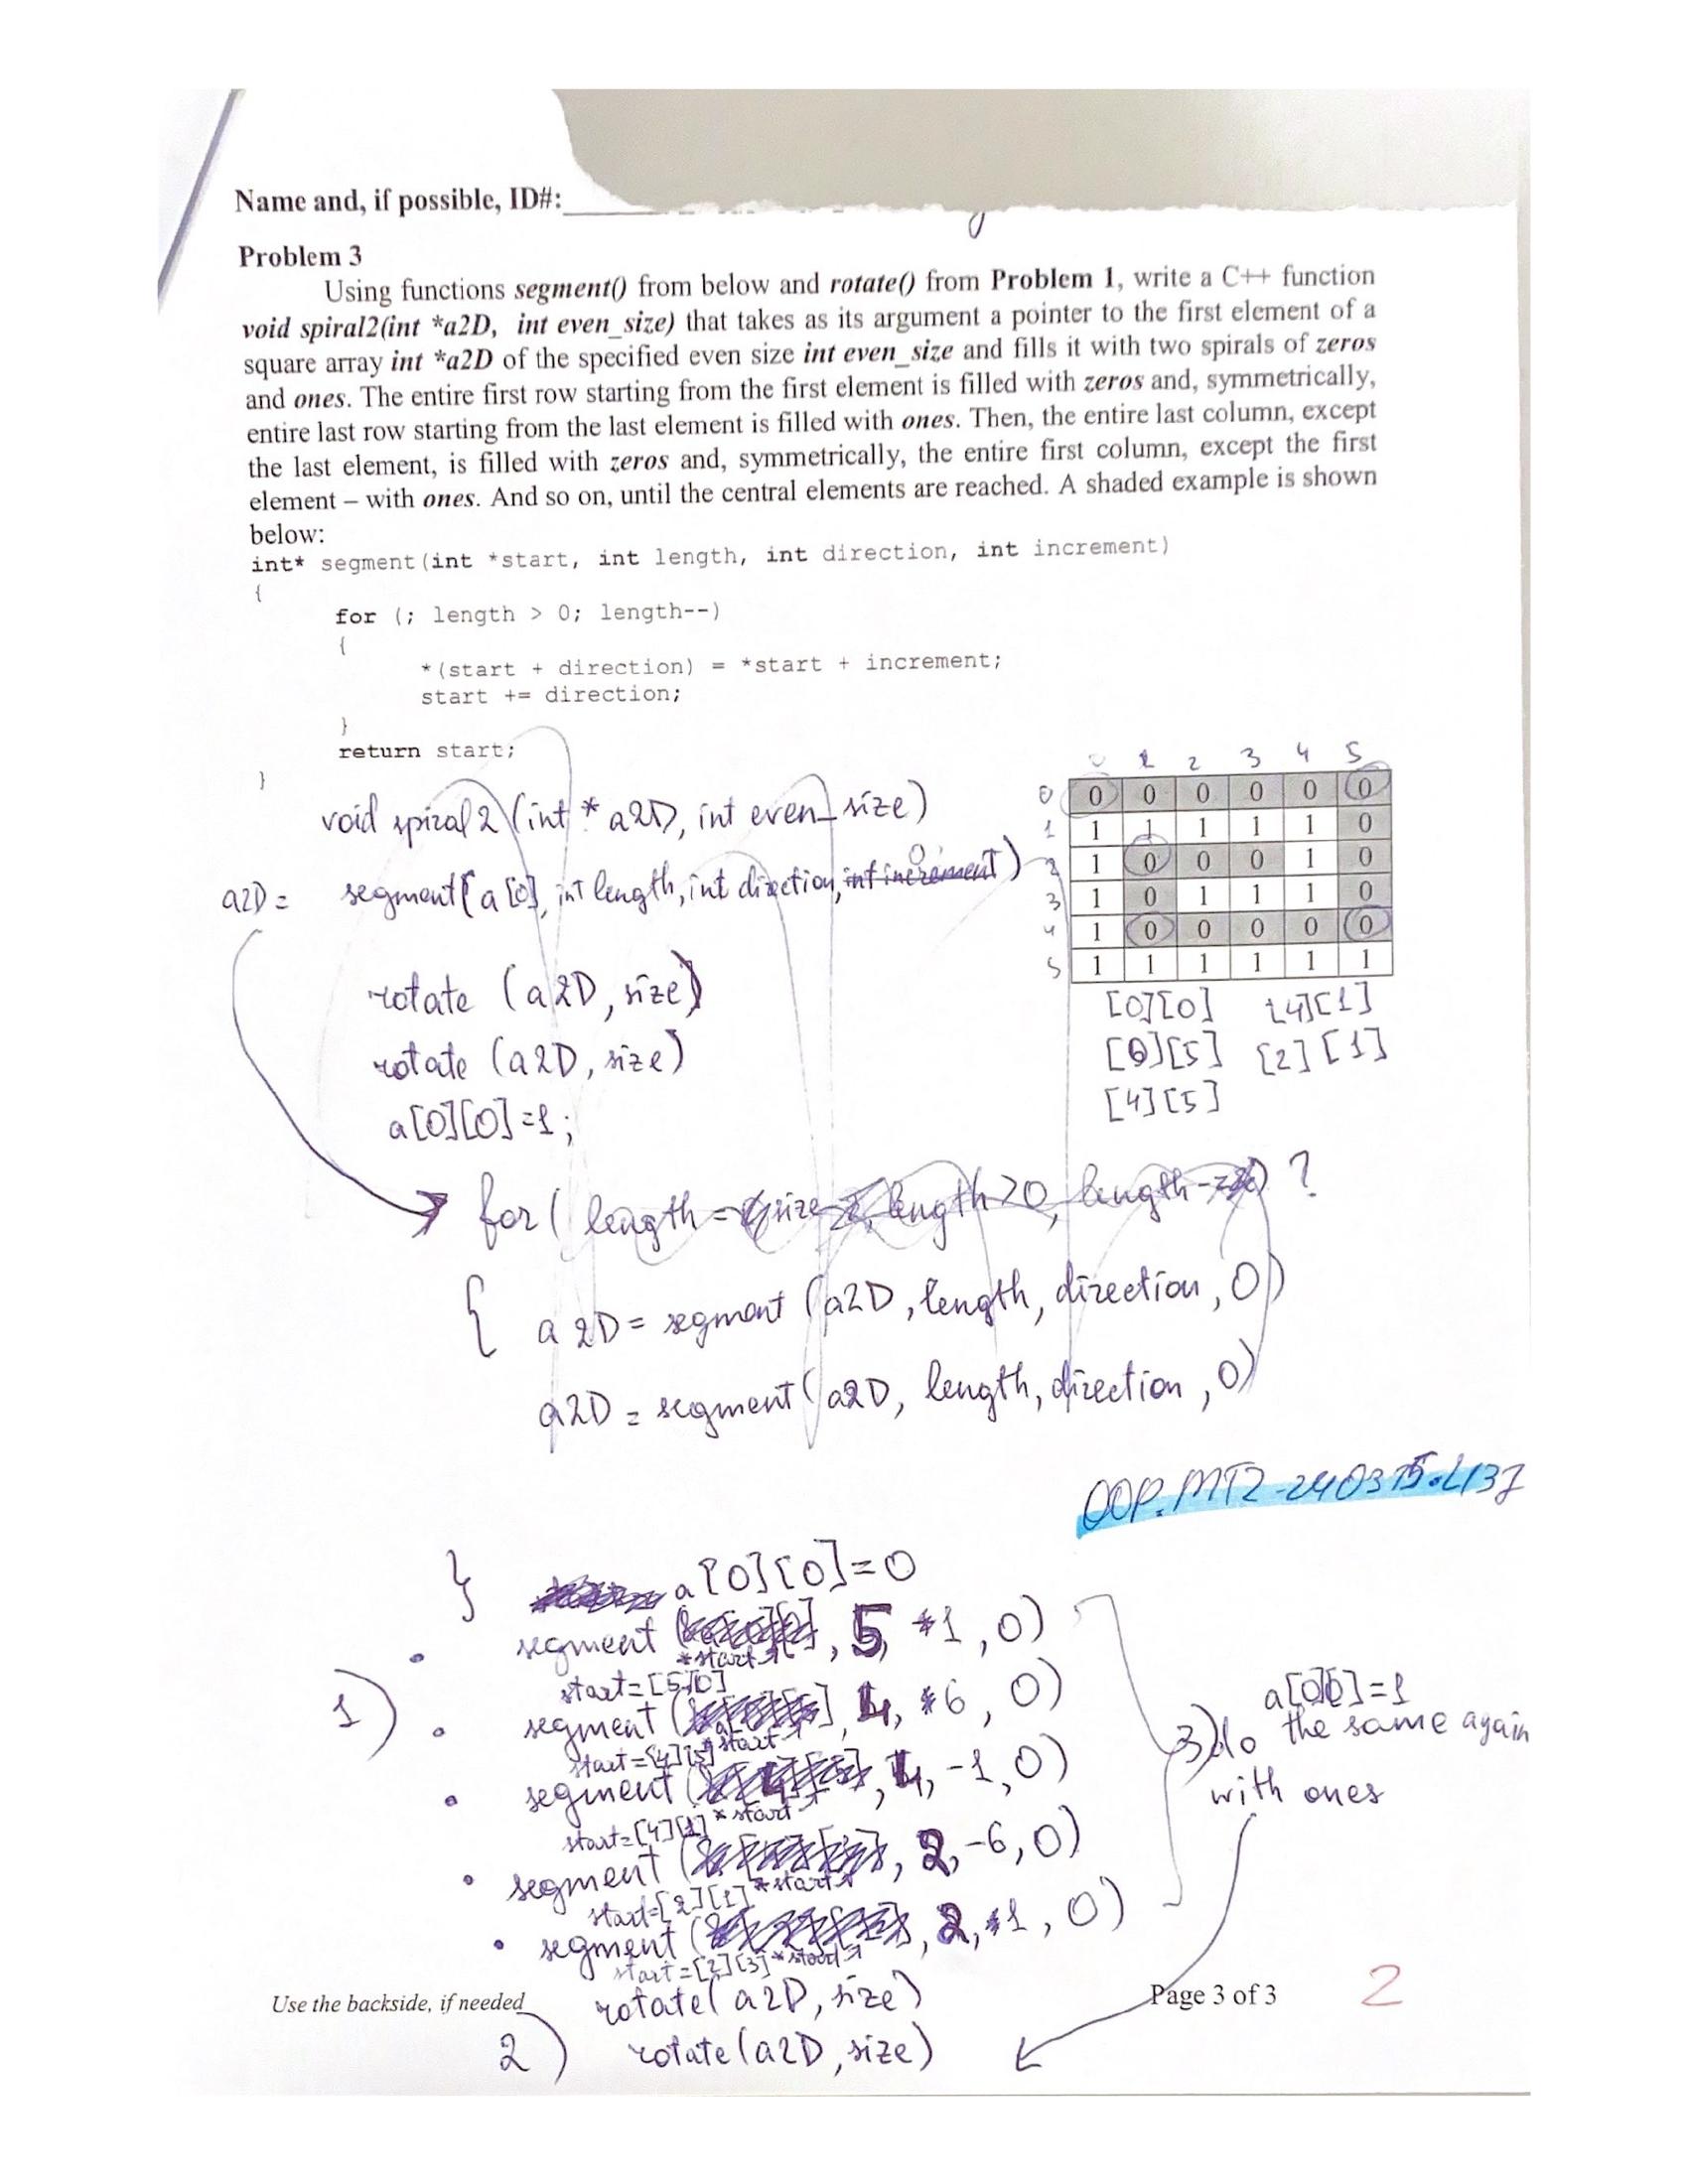 Name and, if possible, ID#:
Problem 3
Using functions segment() from below and rotate() from Problem 1, write a C++ function
void spiral2(int *a2D, int even_size) that takes as its argument a pointer to the first element of a
square array int *a2D of the specified even size int even_size and fills it with two spirals of zeros
and ones. The entire first row starting from the first element is filled with zeros and, symmetrically,
entire last row starting from the last element is filled with ones. Then, the entire last column, except
the last element, is filled with zeros and, symmetrically, the entire first column, except the first
element – with ones. And so on, until the central elements are reached. A shaded example is shown
below:
int* segment(int *start, int length, int direction, int increment)
{
for (; length > 0; length--)
{
*(start + direction) = *start + increment;
start += direction;
}
return start;
}
0 1 2 3 4 5
0 0 0 0 0 0 0
1 1 1 1 1 1 0
2 1 0 0 0 1 0
3 1 0 1 1 1 0
4 1 0 0 0 0 0
5 1 1 1 1 1 1
[0][0] [4][1]
[0][5] [2][1]
[4][5]
void spiral2 (int * a2D, int even_size)
a2D = segment(a[0], int length, int direction, int increment) 0
rotate (a2D, size)
rotate (a2D, size)
a[0][0]=1;
for( length = size length>0, length- ) ?
{ a2D = segment (a2D, length, direction, 0)
a2D = segment (a2D, length, direction, 0)
OOP.MT2-240315.L137
} a[0][0]=0
segment ( *start, 5, *1, 0)
start=[5][0]
1) segment ( *start, 4, *6, 0)
start=[4][5]
segment ( *start, 4, -1, 0)
start=[4][1]
segment ( *start, 2, -6, 0)
start=[2][1]
segment ( *start, 2, *1, 0)
start=[2][3]
rotate( a2D, size)
2) rotate (a2D, size)
a[0][0]=1
3) do the same again
with ones
Use the backside, if needed
Page 3 of 3
2